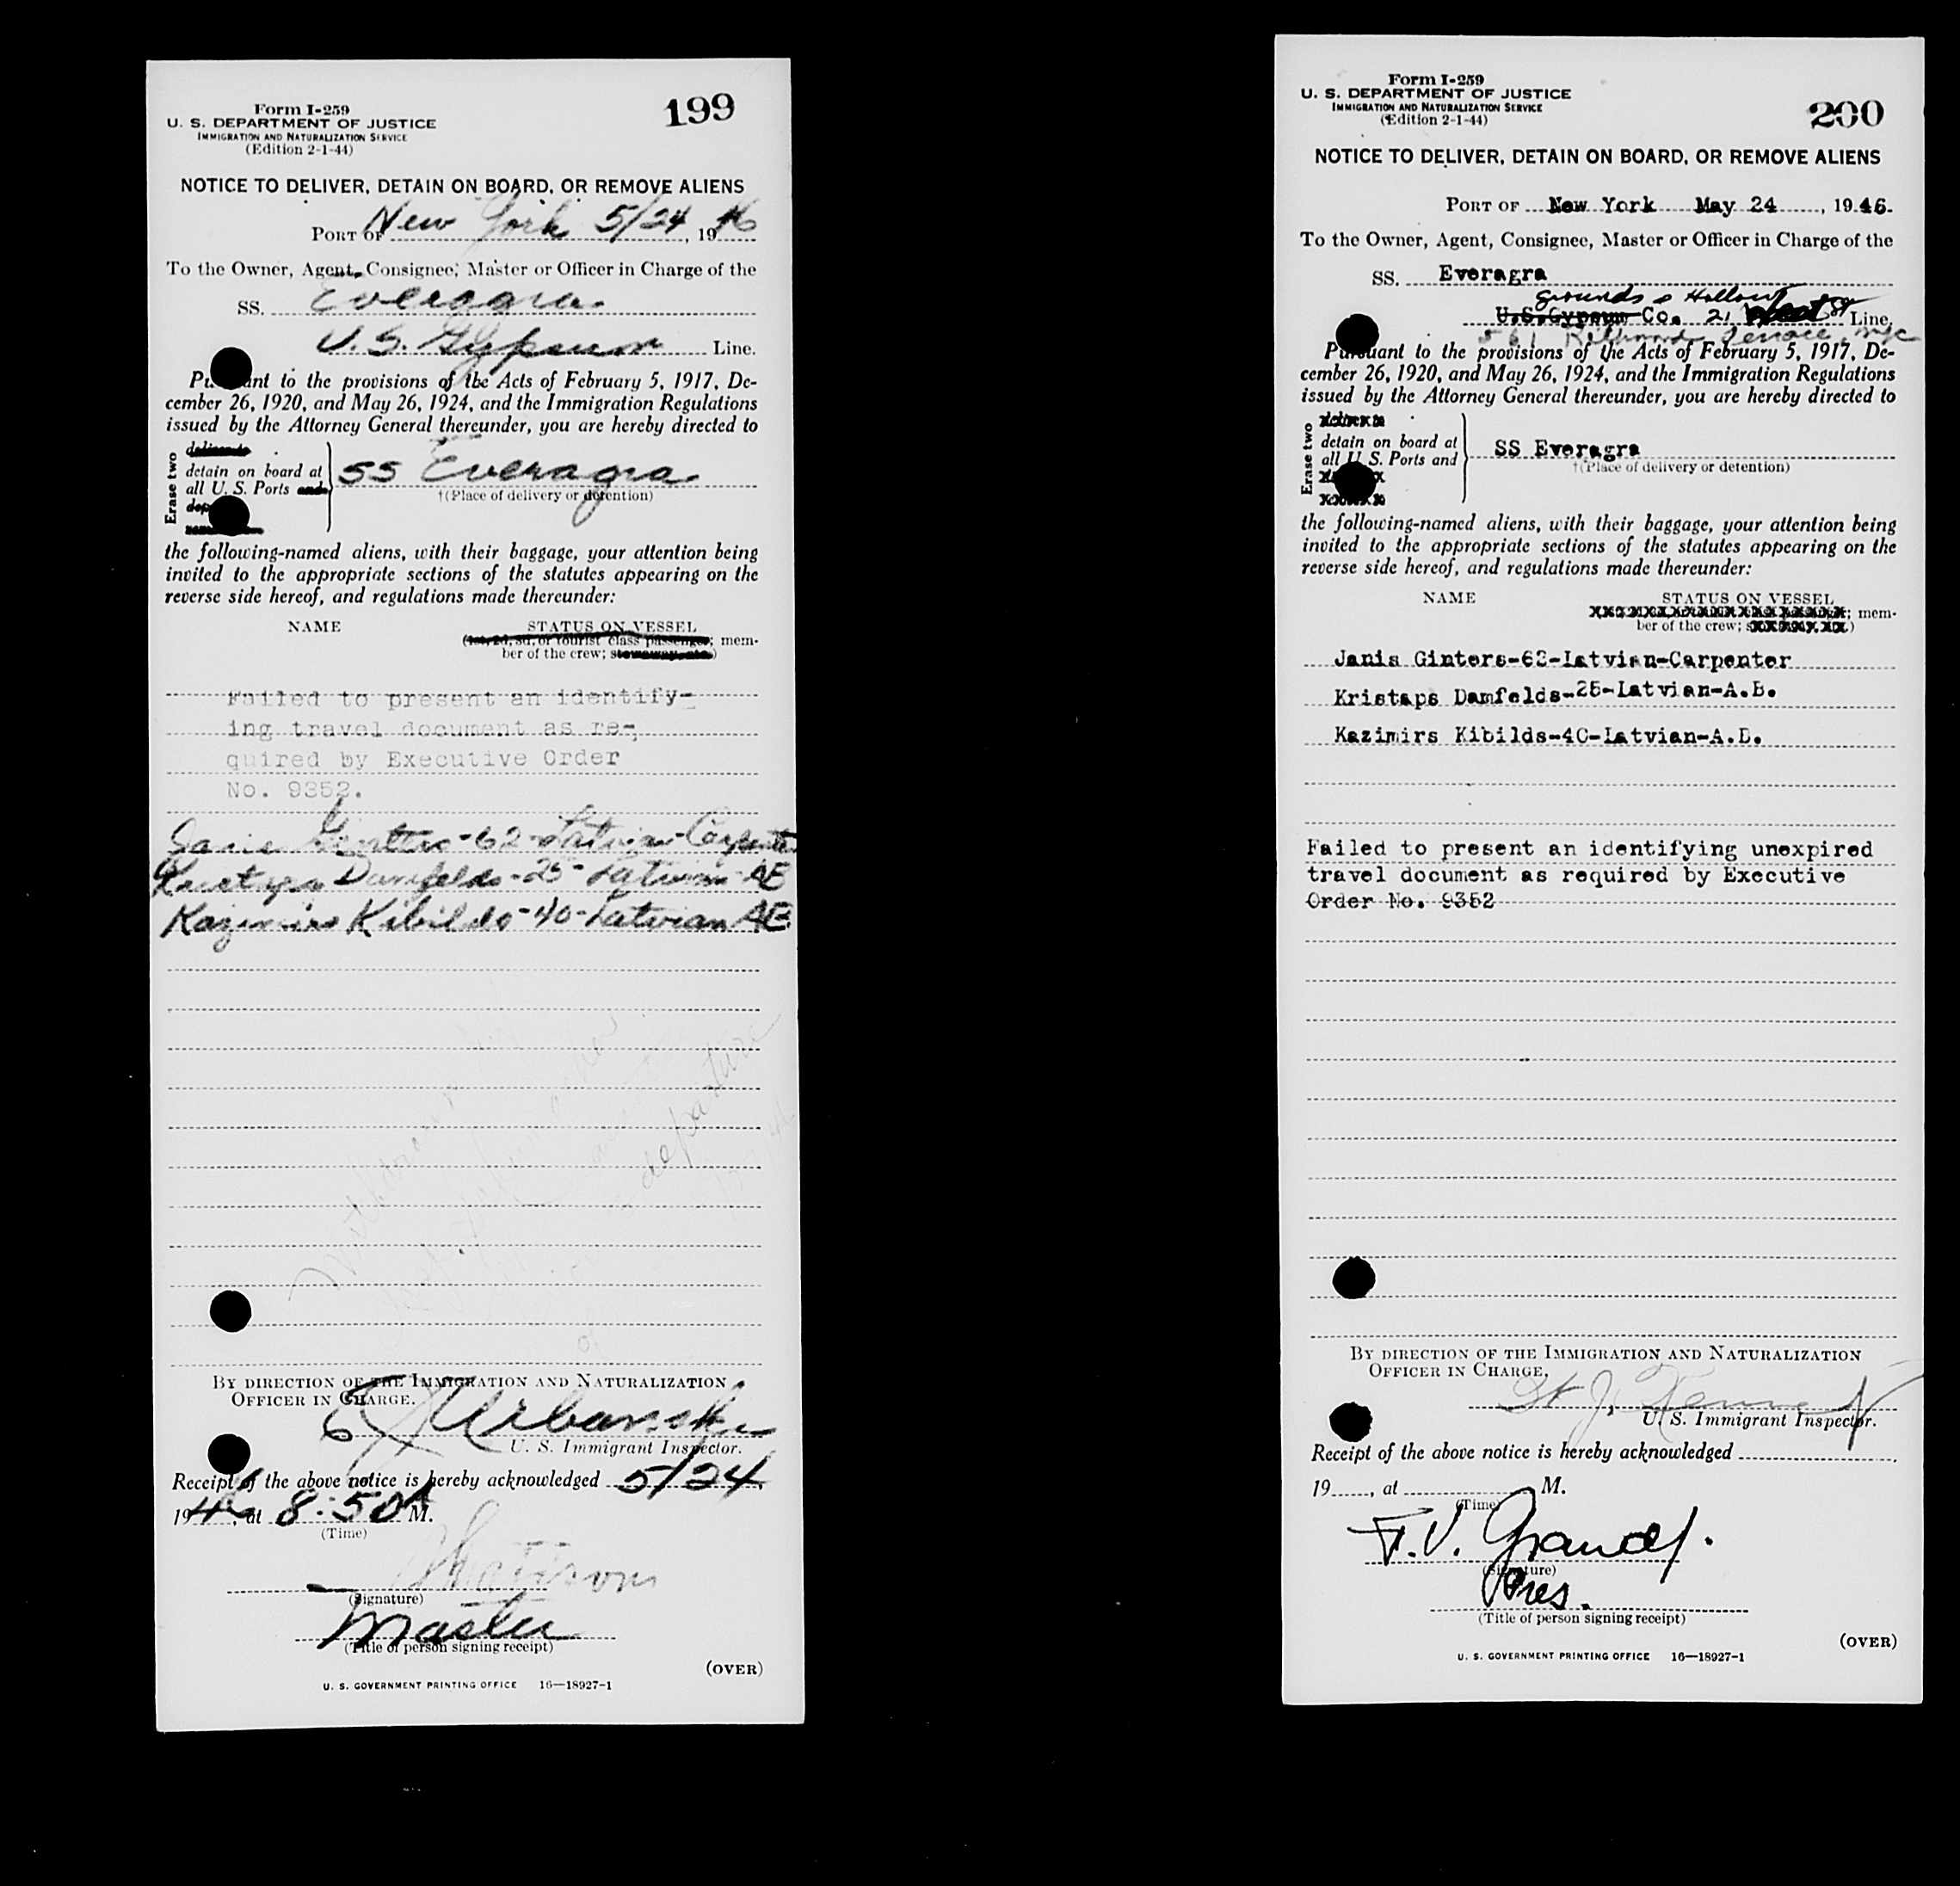 Form I-259
U. S. DEPARTMENT OF JUSTICE
IMMIGRATION AND NATURALIZATION SERVICE
(Edition 2-1-44)
199
NOTICE TO DELIVER, DETAIN ON BOARD, OR REMOVE ALIENS
PORT OF New York 5/24, 1946
To the Owner, Agent, Consignee, Master or Officer in Charge of the
SS. Everagra
U.S. Gypsum Line.
Pursuant to the provisions of the Acts of February 5, 1917, De-
cember 26, 1920, and May 26, 1924, and the Immigration Regulations
issued by the Attorney General thereunder, you are hereby directed to
Erase two
deliver to
detain on board at
all U. S. Ports and
SS Everagra
†(Place of delivery or detention)
the following-named aliens, with their baggage, your attention being
invited to the appropriate sections of the statutes appearing on the
reverse side hereof, and regulations made thereunder:
NAME STATUS ON VESSEL
(1st, 2d, 3d, or tourist class passenger; mem-
ber of the crew; stowaway, etc.)
Failed to present an identify-
ing travel document as re-
quired by Executive Order
No. 9352.
Janis Ginters-62-Latvian-Carpenter
Kristaps Damfelds-25-Latvian-AB
Kazimirs Kibilds-40-Latvian AB
departure
BY DIRECTION OF THE IMMIGRATION AND NATURALIZATION
OFFICER IN CHARGE.
Urbanski
U. S. Immigrant Inspector.
Receipt of the above notice is hereby acknowledged 5/24,
1946, at 8:50 A M.
(Time)
(Signature)
Master
(Title of person signing receipt)
(OVER)
U. S. GOVERNMENT PRINTING OFFICE 16—18927-1
Form I-259
U. S. DEPARTMENT OF JUSTICE
IMMIGRATION AND NATURALIZATION SERVICE
(Edition 2-1-44)
200
NOTICE TO DELIVER, DETAIN ON BOARD, OR REMOVE ALIENS
PORT OF New York May 24, 1946.
To the Owner, Agent, Consignee, Master or Officer in Charge of the
SS. Everagra
U.S.Gypsum Co. 21 Line.
561 Richmond Terrace, NYC
Pursuant to the provisions of the Acts of February 5, 1917, De-
cember 26, 1920, and May 26, 1924, and the Immigration Regulations
issued by the Attorney General thereunder, you are hereby directed to
Erase two
detain on board at
all U. S. Ports and
SS Everagra
†(Place of delivery or detention)
the following-named aliens, with their baggage, your attention being
invited to the appropriate sections of the statutes appearing on the
reverse side hereof, and regulations made thereunder:
NAME STATUS ON VESSEL
; mem-
ber of the crew;
Janis Ginters-62-Latvian-Carpenter
Kristaps Damfelds-25-Latvian-A.B.
Kazimirs Kibilds-40-Latvian-A.B.
Failed to present an identifying unexpired
travel document as required by Executive
Order No. 9352
BY DIRECTION OF THE IMMIGRATION AND NATURALIZATION
OFFICER IN CHARGE,
U. S. Immigrant Inspector.
Receipt of the above notice is hereby acknowledged
19, at M.
(Time)
F. V. Grandf.
(Signature)
Pres.
(Title of person signing receipt)
(OVER)
U. S. GOVERNMENT PRINTING OFFICE 16—18927-1